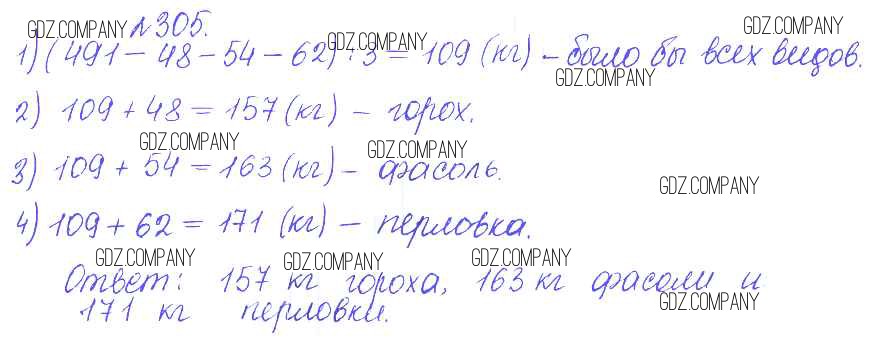 №305.
1) (491 - 48 - 54 - 62) : 3 = 109 (кг) - было бы всех видов.
2) 109 + 48 = 157 (кг) - горох.
3) 109 + 54 = 163 (кг) - фасоль.
4) 109 + 62 = 171 (кг) - перловка.
Ответ: 157 кг гороха, 163 кг фасоли и
171 кг перловки.
GDZ.COMPANY
GDZ.COMPANY
GDZ.COMPANY
GDZ.COMPANY
GDZ.COMPANY
GDZ.COMPANY
GDZ.COMPANY
GDZ.COMPANY
GDZ.COMPANY
GDZ.COMPANY
GDZ.COMPANY